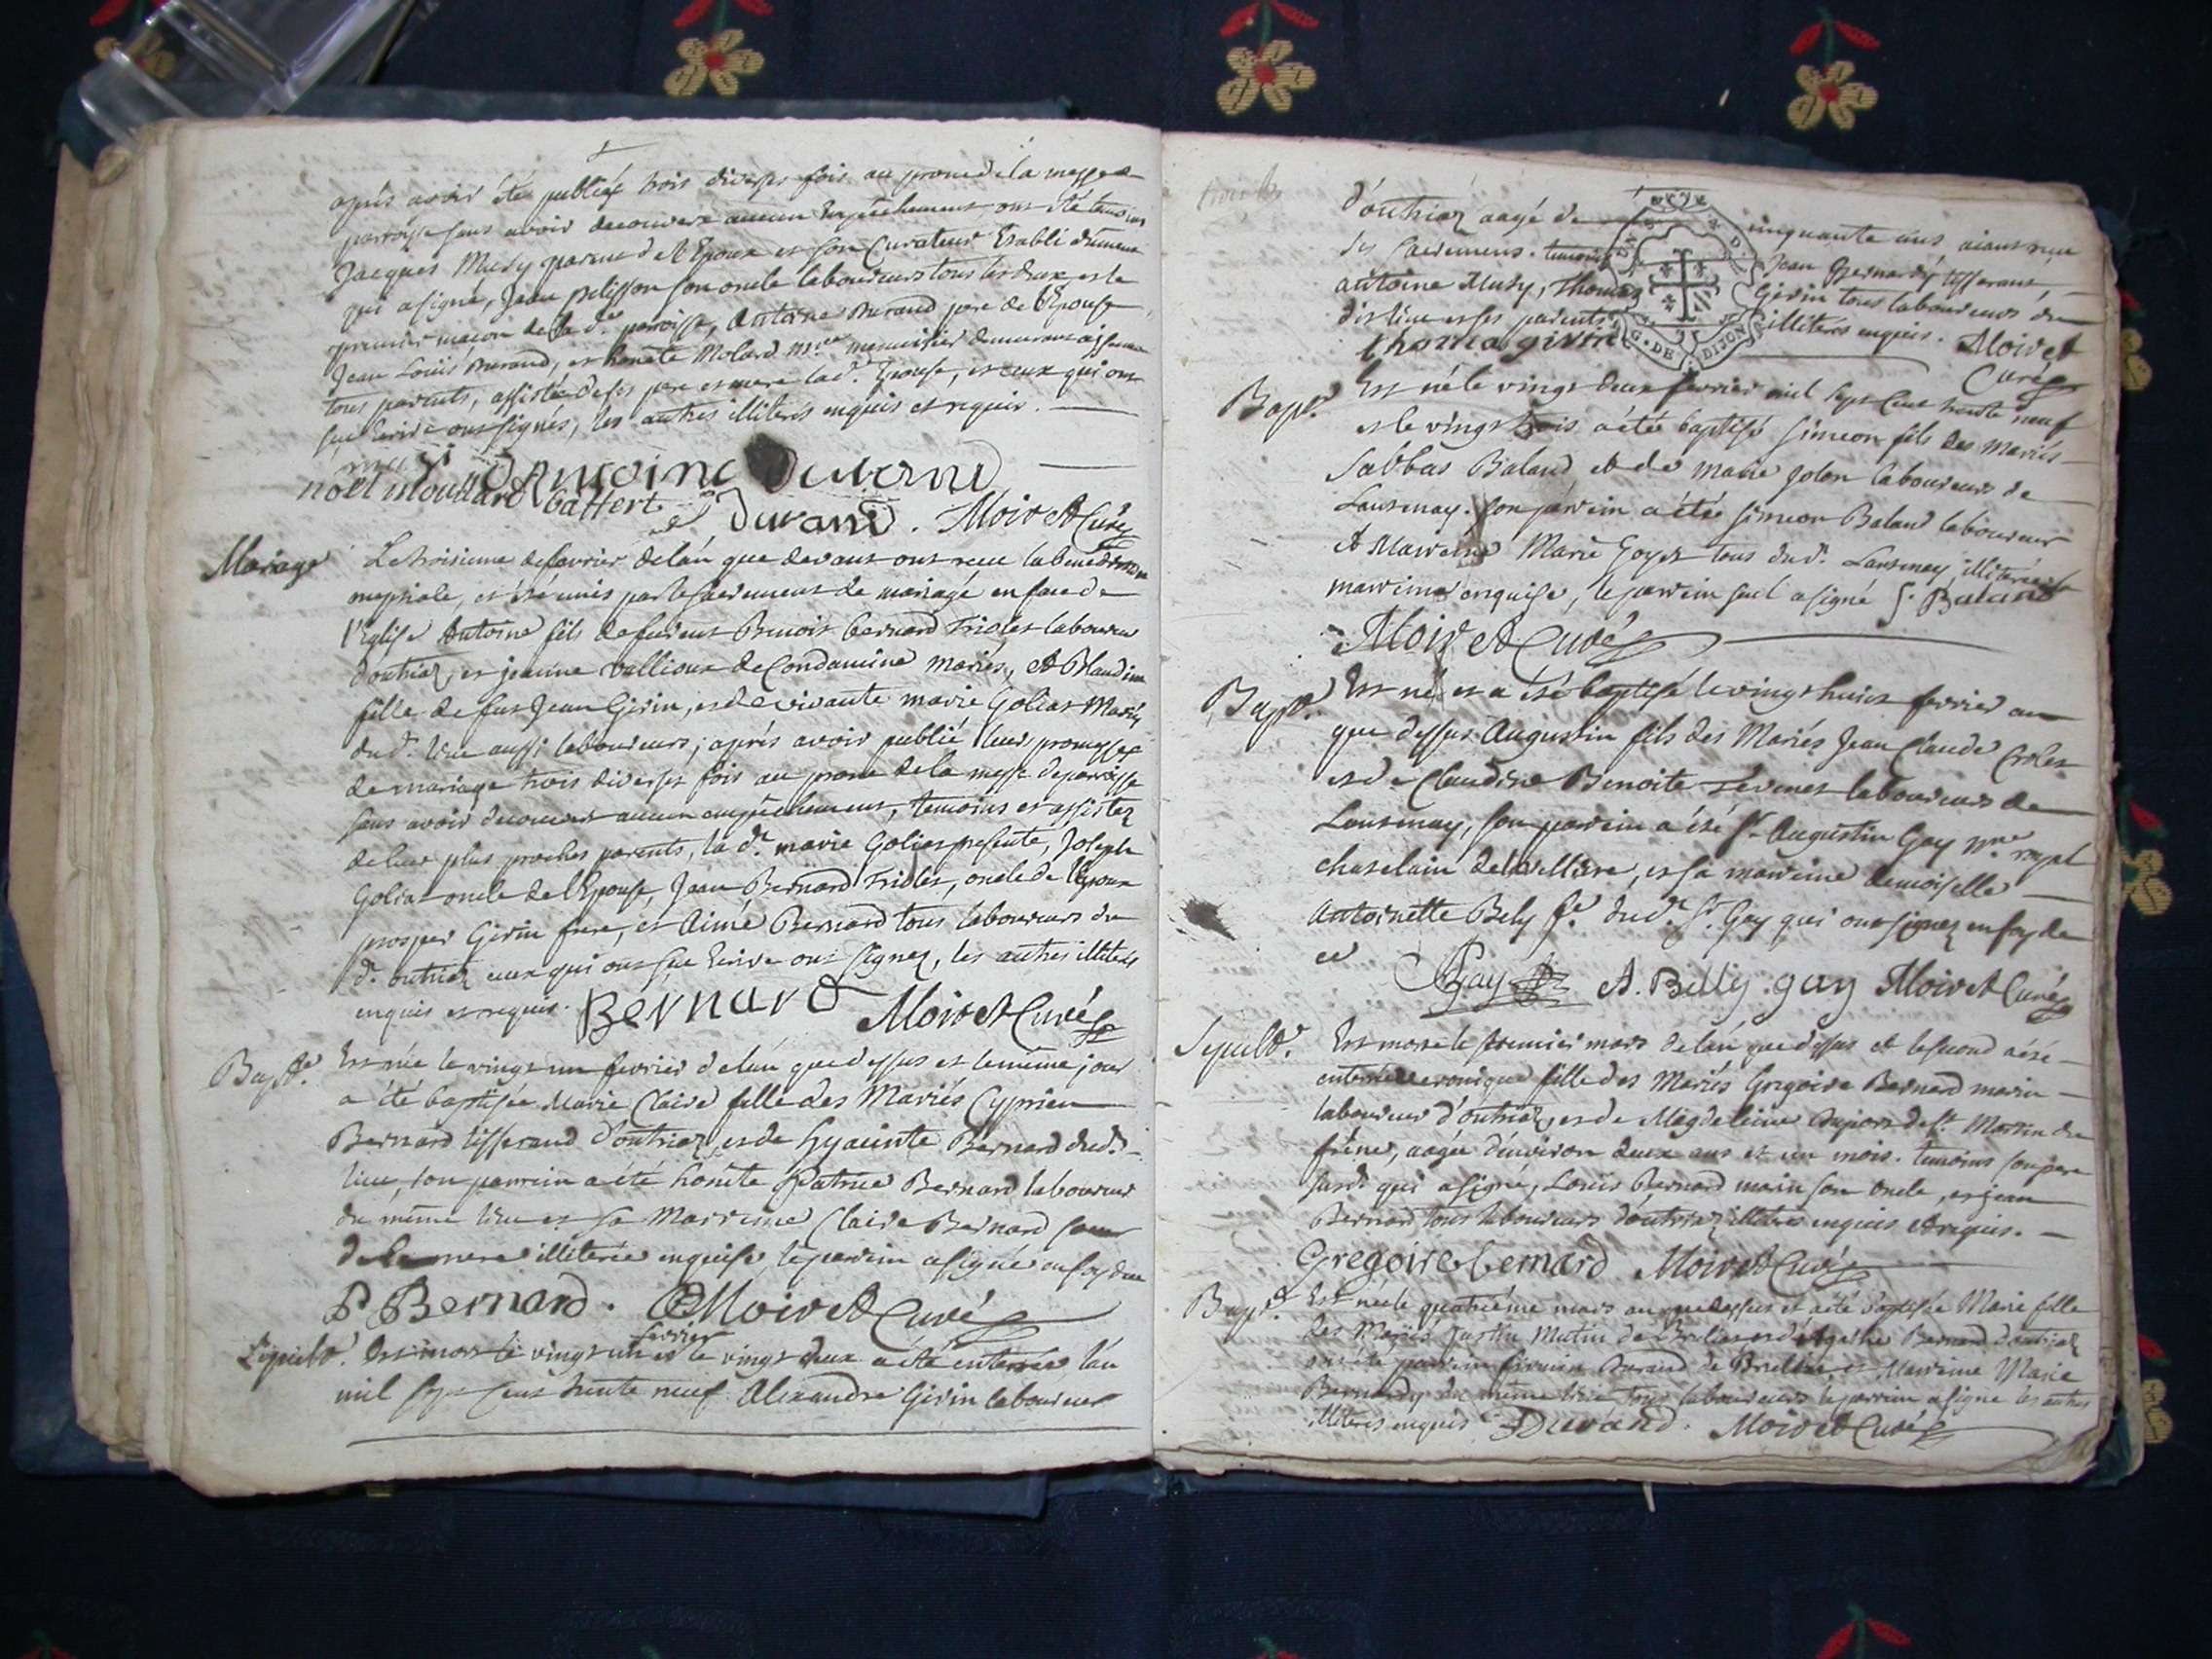 après avoir été publiéz trois diverses fois au prone de la messe de
parroisse sans avoir decouvert aucun Empêchement, ont été temoins
Jacques Mudy parent de l'Epoux et son Curateur Etabli
qui a signé, Jean pelisson son oncle laboureurs tous les deux, et le
maçon de la de parroisse, Antoine Durand pere de l'Epouse
Jean Louis Durand, et honête Molard mre menuisier
tous parents, assistée de ses pere et mere lade Epouse, et ceux qui ont
sçu Ecrire ont signés, les autres illiterés enquis et requis.
Antoine Durand
noel moullard Gattert
Durand. Moiret Curé
Mariage
Le troisieme de fevrier de lan que devant ont receu la benediction
nuptiale, et été unis par le sacrement de mariage en face de
l'Eglise Antoine fils de feu Benoit bernard Triolet laboureur
d'outriaz, et jeanne Vallioux de Condamine mariés, et Claudine
fille de fut Jean Girin, et de vivante marie Goliat Mariés
dud. lieu aussi laboureurs; aprés avoir publié leurs promesses
de mariage trois diverses fois au prone de la messe de parroisse
sans avoir decouvert aucun empêchement, temoins et assistez
de leur plus proches parents, la de marie Goliat presente, Joseph
Goliat oncle de l'Epouse, Jean Bernard Triolet, oncle de l'Epoux
prosper Girin frere, et Aimé Bernard tous laboureurs du
d. outriaz ceux qui ont sçu Ecrire ont signez, les autres illiterés
enquis et requis. Bernard Moiret Curé
Bapte.
Est née le vingt un fevrier de lan que dessus et le même jour
a été baptisée Marie Claire fille des Mariés Cyprien
Bernard tisserand d'outriaz et de hyacinte Bernard dud.
lieu, son parrein a été honête Patrice Bernard laboureur
du même lieu et sa Marreine Claire Bernard sœur
de la mere illiterée enquise le parrein a signé en foy de ce
P Bernard. Moiret Curé
Sepult.
Est mort le vingt un fevrier et le vingt deux a été enterré lan
mil sept cent trente neuf Alexandre Girin laboureur
d'outriaz aagé de cinquante ans aiant receu
les sacremens. temoins Jean Bernard tisserand,
antoine Mudy, Thomas Girin tous laboureurs du
dit lieu et ses parents illiterés enquis. Moiret
thoma girin Curé
G. DE DIJON
Bapt.
Est né le vingt deux fevrier mil sept cent trente neuf
et le vingt trois a été baptisé simeon fils des mariés
Sabbas Baland et de marie Jolon laboureurs de
Lantenay. son parrein a été simeon Baland laboureur
et Marreine Marie Goyet tous dud. Lantenay, illiterée la
marreine enquise, le parrein seul a signé S. Baland
Moiret Curé
Bapt.
Est né et a été baptisé le vingt huit fevrier an
que dessus Augustin fils des Mariés Jean Claude Crolet
et de Claudine Benoite Tevenet laboureurs de
Lantenay, son parrein a été Sr Augustin Gay nre royal
chatelain de la velliere, et sa marreine demoiselle
Antoinette Bely fe. dud. Sr. Gay qui ont signez en foy de
ce Gay A. Billy. gay Moiret Curé
Sepult.
Est morte le premier mars de lan que dessus et le second a été
enterrée veronique fille des Mariés Gregoire Bernard marin
laboureur d'outriaz, et de Magdeleine Duport de St. Martin du
frêne, aagée d'environ deux ans et un mois. temoins son pere
susd. qui a signé, Louis Bernard marin son oncle, et jean
Bernard tous laboureurs d'outriaz illiterés enquis et requis.
Gregoire bernard Moiret Curé
Bapt.
Est née le quatriéme mars an que dessus et a été baptisée Marie fille
des Mariés Justin Mutin de Brulier et d'Agathe Bernard d'outriaz
a été parrein firmin Durand de et Marreine Marie
Bernard du même lieu tous laboureurs le parrein a signé les autres
illiterés enquis Durand. Moiret Curé